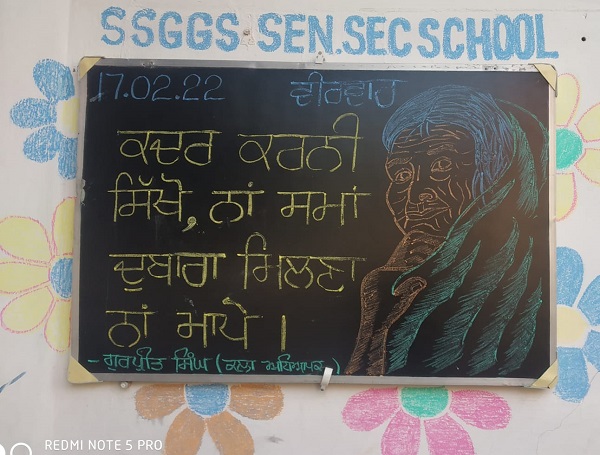 SSGGS SEN.SEC SCHOOL
17.02.22 ਵੀਰਵਾਰ
ਕਦਰ ਕਰਨੀ
ਸਿੱਖੋ, ਨਾਂ ਸਮਾਂ
ਦੁਬਾਰਾ ਮਿਲਣਾ
ਨਾਂ ਮਾਪੇ ।
- ਗੁਰਪ੍ਰੀਤ ਸਿੰਘ (ਕਲਾ ਅਧਿਆਪਕ)
REDMI NOTE 5 PRO